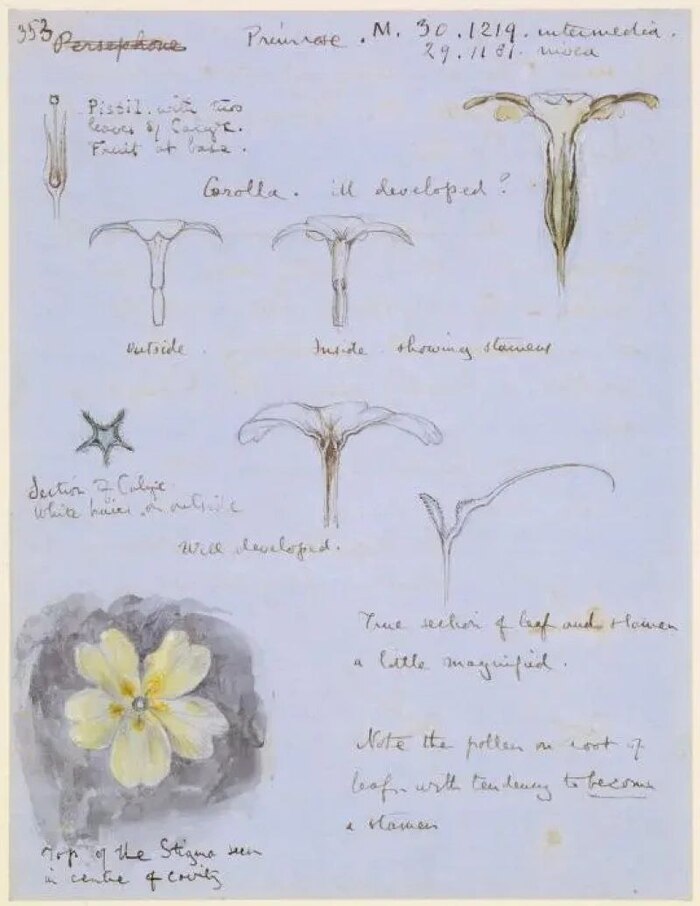 353 Persephone Primrose. M. 30. 1219. intermedia.
29. 11 81.
Pistil. with two
leaves of Calyx.
Fruit at base.
Corolla. ill developed?
outside.
Inside showing stamens
Section of Calyx.
White hairs on outside
Well developed.
True section of leaf and stamen
a little magnified.
Note the pollen on root of
leaf, with tendency to become
a stamen
Top of the Stigma seen
in centre of cavity